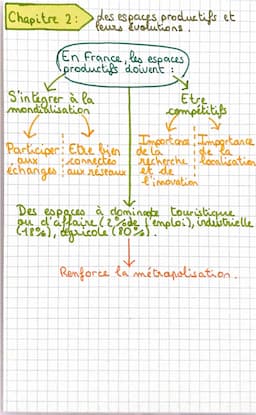 Chapitre 2: des espaces productifs et
leurs évolutions.
En France, les espaces
productifs doivent:
S'intégrer à la
mondialisation
Etre
compétitifs
Participer
aux
échanges
Etre bien
connectés
aux réseaux
Importance
de la
recherche
et de
l'inovation
Importance
de la
localisation
Des espaces à dominante touristique
ou d'affaire (2% de l'emploi), industrielle
(18%), agricole (80%).
Renforce la métrapolisation.